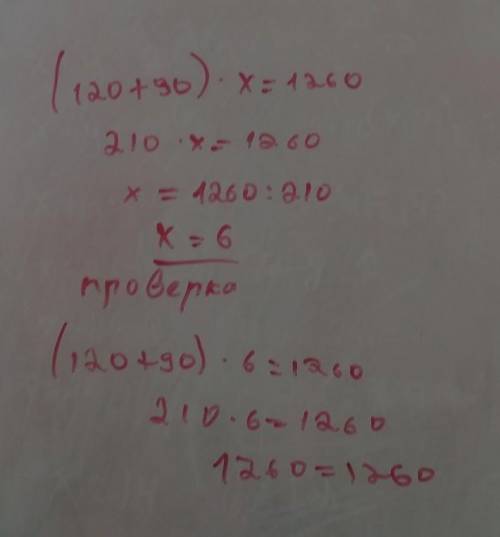 (120+90)·x=1260
210·x=1260
x=1260:210
x=6
проверка
(120+90)·6=1260
210·6=1260
1260=1260